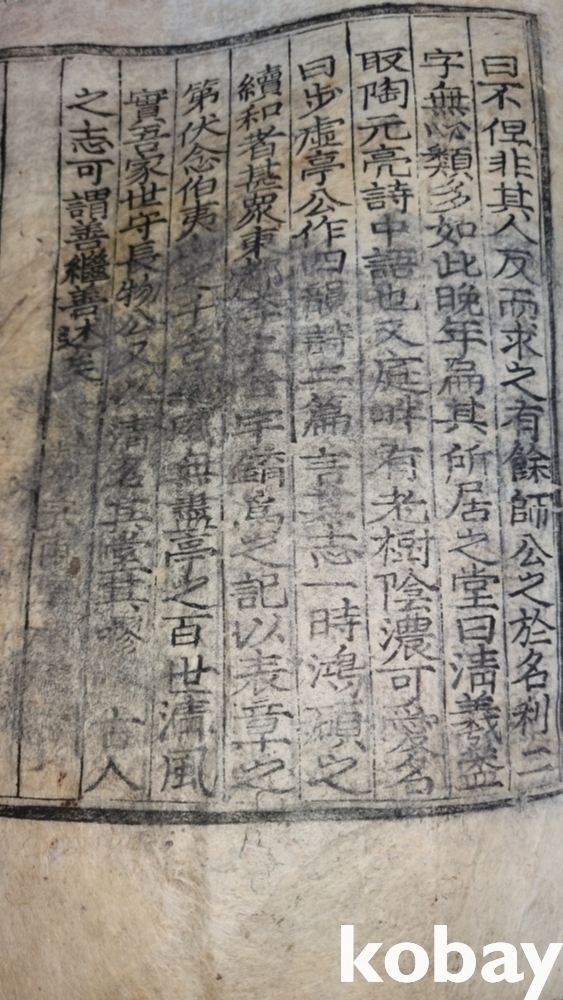 曰不但非其人反而求之有餘師公之於名利二
字無心類多如此晩年扁其所居之堂曰淸羲盖
取陶元亮詩中語也又庭畔有老樹陰濃可愛名
曰步虛亭公作四韻詩二篇言其志一時鴻碩之
續和者甚衆東 字 爲之記以表章之
第伏念伯夷 無盡亭之百世淸風
實吾家世守長物公又以淸名其堂其 古人
之志可謂善繼善述矣
kobay